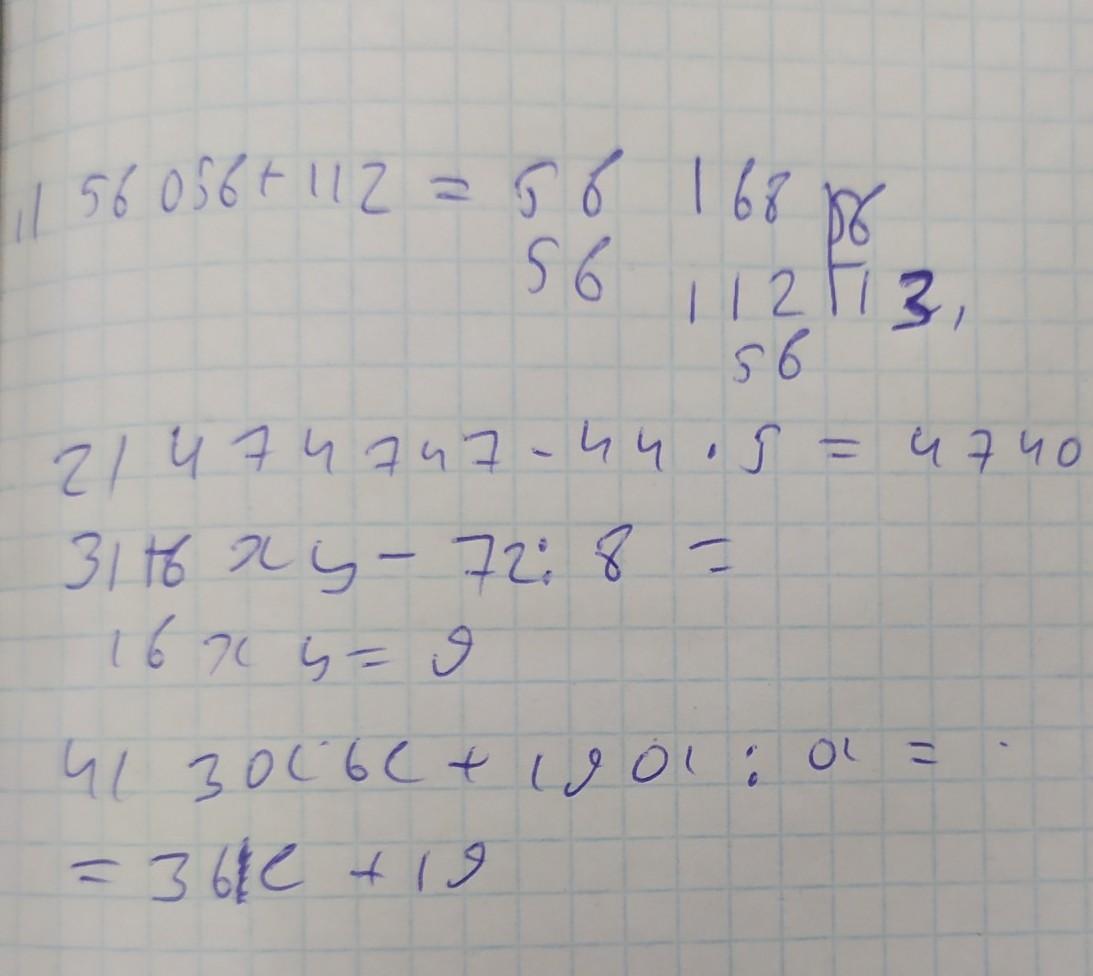 1) 56 056 + 112 = 56 168 56
56 112 113,
56
2) 474747 - 44 · 5 = 4740
3) 16 x y - 72 : 8 =
16 x y = 9
4) 3 a 6 c + 19 a : a =
= 36 c + 19